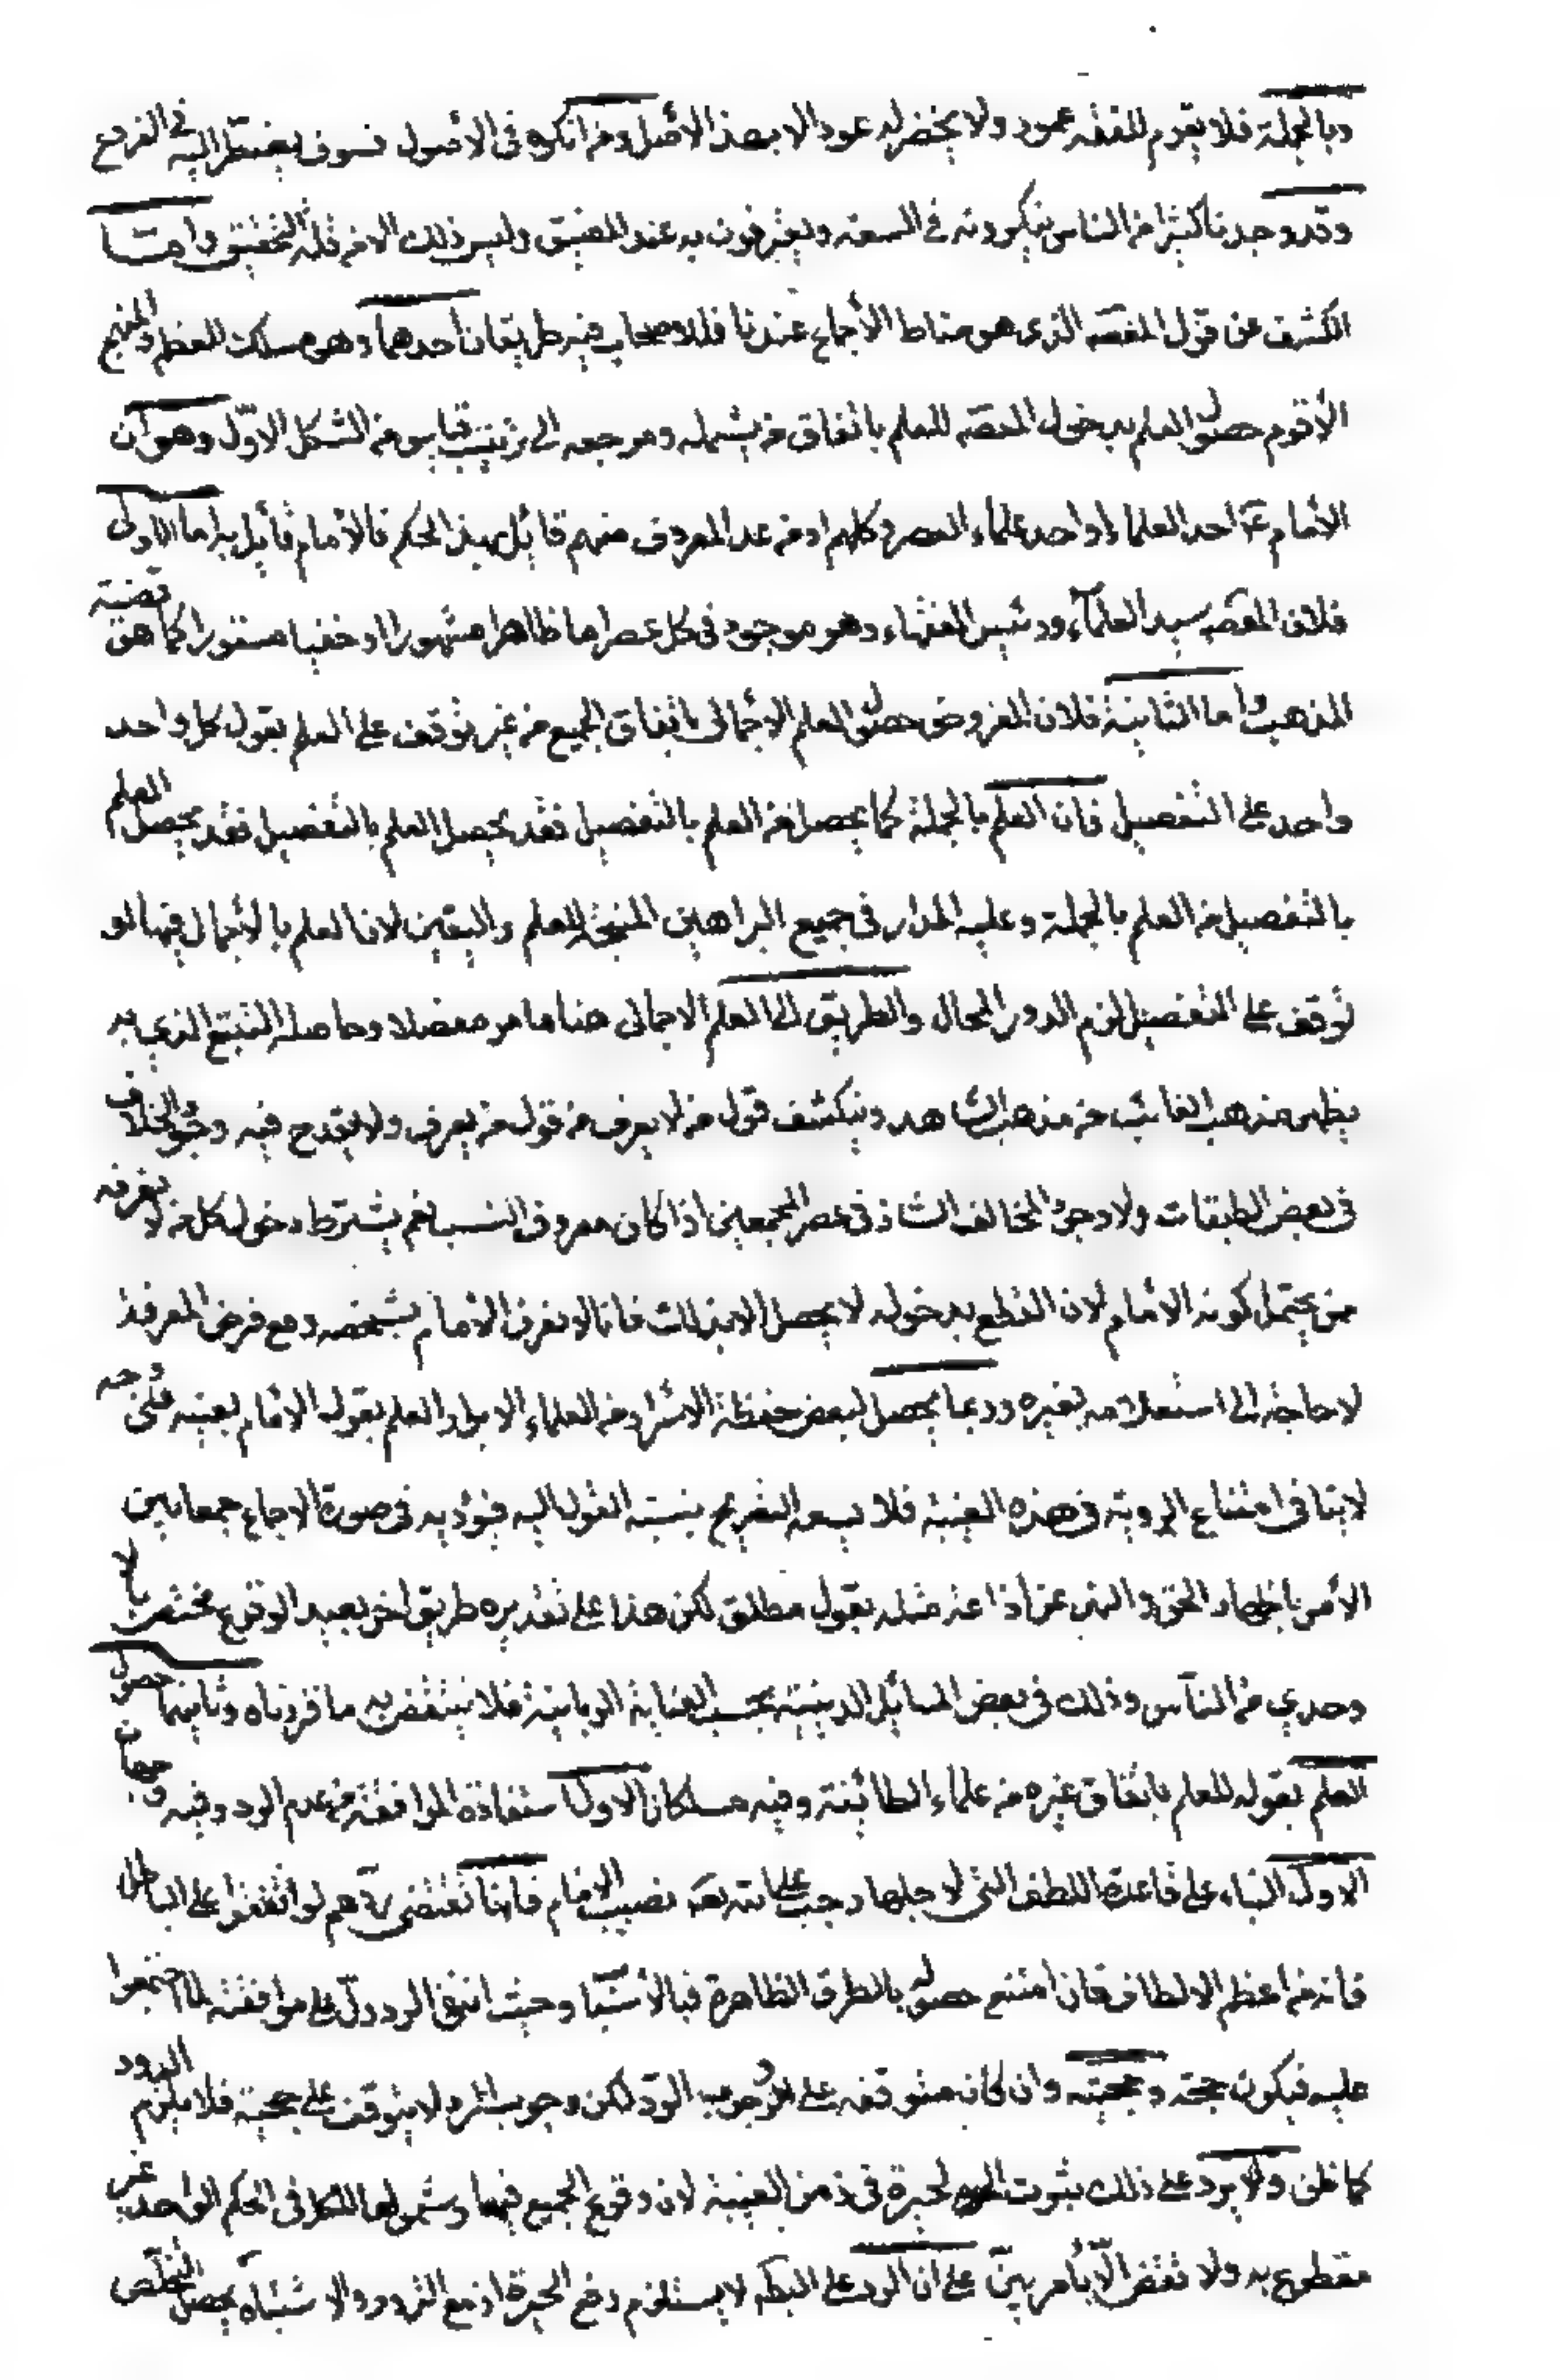 وبالجملة فلا يقوم للفقه عمود ولا يخضر له عود الا بهذا الأصل ومن انكره في الاصول فسوف يضطر اليه في الفروع
وقد وجدنا كثيرا من الناس ينكرونه في السعة ويعترفون به عند الضيق وليس ذلك الا من قلة التحقيق واما
الكشف عن قول المعصوم الذي هو مناط الأجماع عندنا فللاصحاب فيه طريقان أحدهما وهو مسلك المعظم والمنهج
الأقوم حصول العلم بدخول المعصوم للعلم باتفاق من يشمله ومرجعه الى ترتيب قياس من الشكل الاوّل وهو ان
الأمام ع احد العلماء او احد علماء العصر وكلهم او من عدا المعروف منهم قائل بهذا الحكم فالامام قائل به اما الاولى
فلان المعصوم سيد العلماء ورئيس الفقهاء وهو موجود في كل عصر اما ظاهرا مشهورا او خفيا مستورا كما هو قضية
المذهب واما الثانية فلان المفروض حصول العلم الاجمالي باتفاق الجميع من غير توقف على العلم بقول كل واحد
واحد على التفصيل فان العلم بالجملة كما يحصل من العلم بالتفصيل فقد يحصل العلم بالتفصيل فقد يحصل العلم
بالتفصيل من العلم بالجملة وعليه المدار في جميع البراهين المنتجة للعلم واليقين لان العلم بالاجمال فيها لو
توقف على التفصيل لزم الدور المحال والطريق الى العلم الاجمالي هنا ما مر مفصلا وحاصله التتبع الذي به
يظهر مذهب الغائب من مذهب الشاهد وينكشف قول من لا يعرف من قول من يعرف ولا يقدح فيه وجود الخلاف
في بعض الطبقات ولا وجود المخالف الشاذ في عصر المجمعين اذا كان معروف النسب نعم يشترط دخول كل من لا نعرفه
ممن يحتمل كونه الامام لان القطع بدخوله لا يحصل الا بذلك فانا لا نعرف الأمام بشخصه ومع فرض المعرفة
لا حاجة الى استعلامه بغيره وربما يحصل لبعض حفظة الاسرار من العلماء الابرار العلم بقول الامام بعينه على وجه
لا ينافي امتناع الرؤية في هذه الغيبة فلا يسعه التصريح بنسبة القول اليه فيؤديه في صورة الاجماع جمعا بين
الأمر باظهار الحق والنهي عن اذاعة مثله بقول مطلق لكن هذا على تقديره طريق اخر بعيد الوقوع مختص بالا
وحدي من الناس وذلك في بعض المسائل الدينية بحسب العناية الربانية فلا ينتقض به ما قررناه وثانيهما حصول
العلم بقوله للعلم باتفاق غيره من علماء الطائفة وفيه مسلكان الاول استفادة الموافقة من عدم الرد وفيه وجهان
الاول البناء على قاعدة اللطف التي لاجلها وجب على الله تعالى نصب الامام فانها تقتضي ردهم لو اتفقوا على الباطل
فانه من اعظم الالطاف فان امتنع حصوله بالطرق الظاهرة فبالأسباب وحيث انتفى الرد دل على موافقته لما اجتمعوا
عليه فيكون حجة وحجيته وان كانت متوقفة على وجوب الرد لكن وجوب الرد لا يتوقف على حجيته فلا يلزم الدور
كما ظن ولا يرد على ذلك ثبوت الحيرة في زمن الغيبة لان وقوع الجميع فيها وشمولها للكل في الحكم الواحد غير
مقطوع به ولا نقض الا بأمر بين على ان الرد على البطلان لا يستلزم رفع الحيرة اذ مع التردد والاشتباه يحصل التخلص